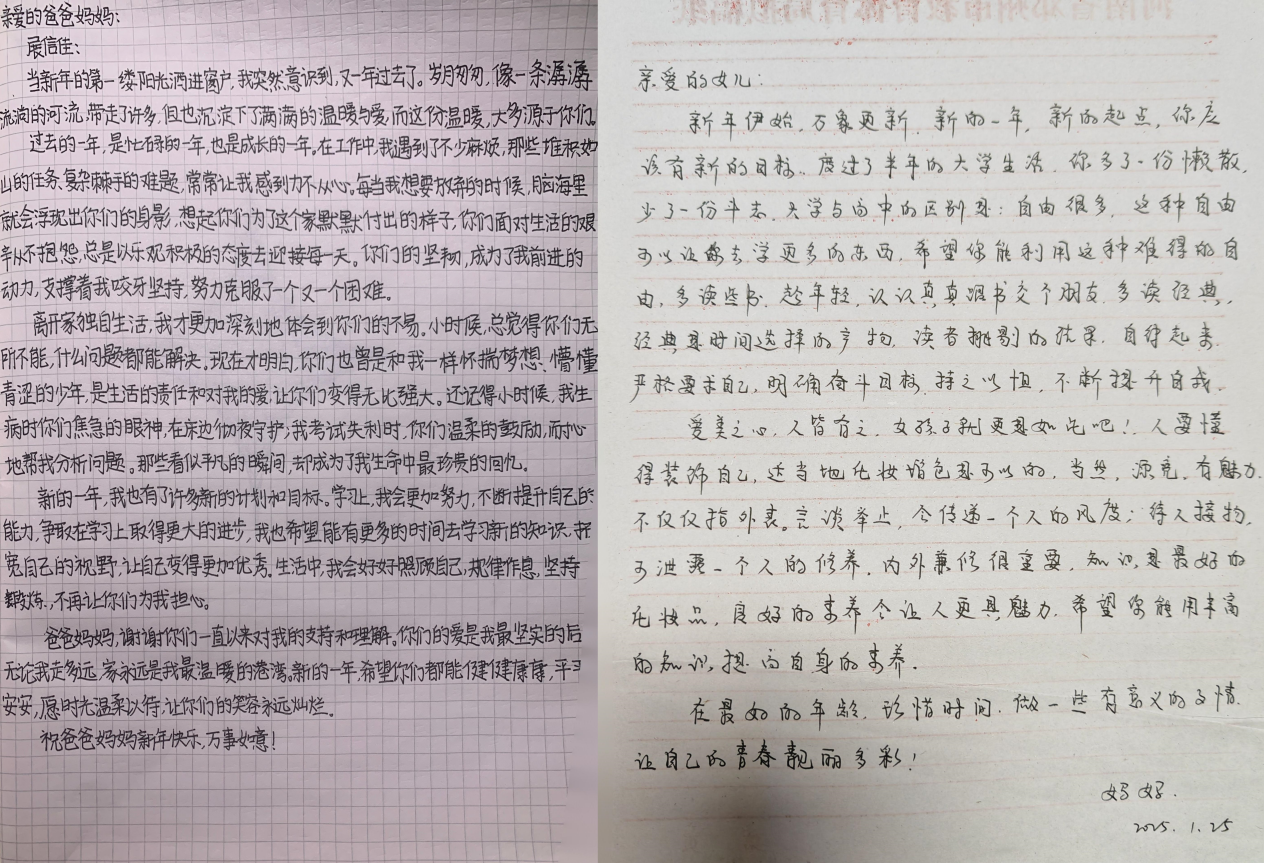 亲爱的爸爸妈妈:
展信佳:
当新年的第一缕阳光洒进窗户,我突然意识到,又一年过去了。岁月匆匆,像一条潺潺
流淌的河流,带走了许多,但也沉淀下了满满的温暖与爱,而这份温暖,大多源于你们。
过去的一年,是忙碌的一年,也是成长的一年。在工作中,我遇到了不少麻烦,那些堆积如
山的任务、复杂棘手的难题,常常让我感到力不从心。每当我想要放弃的时候,脑海里
就会浮现出你们的身影,想起你们为了这个家默默付出的样子,你们面对生活的艰
辛从不抱怨,总是以乐观积极的态度去迎接每一天。你们的坚韧,成为了我前进的
动力,支撑着我咬牙坚持,努力克服了一个又一个困难。
离开家独自生活,我才更加深刻地体会到你们的不易。小时候,总觉得你们无
所不能,什么问题都能解决。现在才明白,你们也曾是和我一样怀揣梦想、懵懂
青涩的少年,是生活的责任和对我的爱,让你们变得无比强大。还记得小时候,我生
病时你们焦急的眼神,在床边彻夜守护;我考试失利时,你们温柔的鼓励,耐心
地帮我分析问题。那些看似平凡的瞬间,却成为了我生命中最珍贵的回忆。
新的一年,我也有了许多新的计划和目标。学习上,我会更加努力,不断提升自己的
能力,争取在学习上取得更大的进步,我也希望能有更多的时间去学习新的知识、拓
宽自己的视野,让自己变得更加优秀。生活中,我会好好照顾自己,规律作息,坚持
锻炼,不再让你们为我担心。
爸爸妈妈,谢谢你们一直以来对我的支持和理解。你们的爱是我最坚实的后
无论我走多远,家永远是我最温暖的港湾。新的一年,希望你们都能健健康康,平平
安安,愿时光温柔以待,让你们的笑容永远灿烂。
祝爸爸妈妈新年快乐,万事如意!
亲爱的女儿:
新年伊始,万象更新,新的一年,新的起点,你应
该有新的目标。度过了半年的大学生活,你多了一份懒散,
少了一份斗志,大学与高中的区别是:自由很多,这种自由
可以让你去学更多的东西,希望你能利用这种难得的自
由,多读些书,趁年轻,认认真真跟书交个朋友,多读经典,
经典是时间选择的产物,读者甄别的结果,自律起来
严格要求自己,明确奋斗目标,持之以恒,不断提升自我。
爱美之心,人皆有之,女孩子就更是如此吧!人要懂
得装饰自己,适当地化妆增色是可以的,当然,漂亮,有魅力
不仅仅指外表。言谈举止,会传递一个人的风度;待人接物,
可泄露一个人的修养,内外兼修很重要,知识是最好的
化妆品,良好的素养会让人更具魅力,希望你能用丰富
的知识,提高自身的素养。
在最好的年龄,珍惜时间,做一些有意义的事情,
让自己的青春靓丽多彩!
妈妈.
2025.1.25